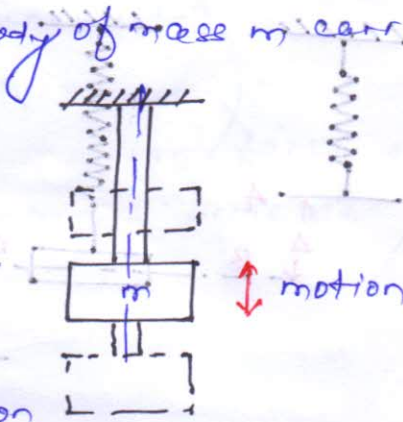 body of mass m carr
m
motion
on